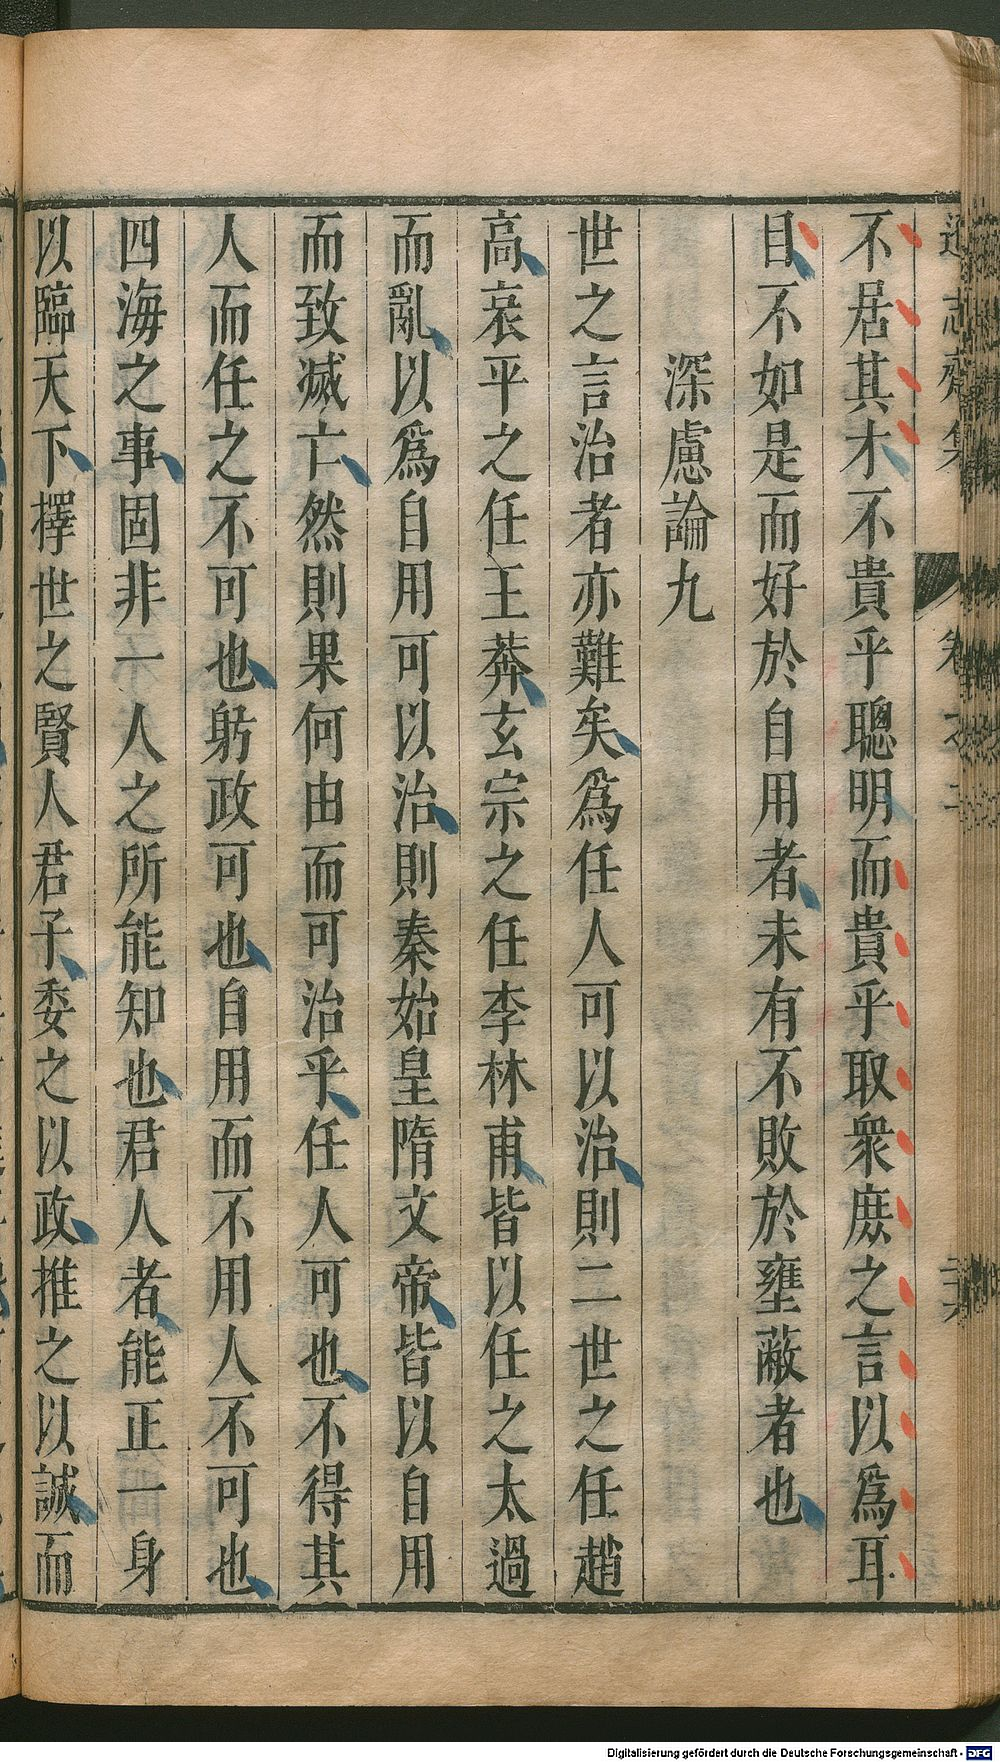 遜志齋集 卷之二
不居其才不貴乎聰明而貴乎取衆庶之言以爲耳
目不如是而好於自用者未有不敗於壅蔽者也
深慮論九
世之言治者亦難矣爲任人可以治則二世之任趙
高哀平之任王莽玄宗之任李林甫皆以任之太過
而亂以爲自用可以治則秦始皇隋文帝皆以自用
而致滅亡然則果何由而可治乎任人可也不得其
人而任之不可也躬政可也自用而不用人不可也
四海之事固非一人之所能知也君人者能正一身
以臨天下擇世之賢人君子委之以政推之以誠而
Digitalisierung gefördert durch die Deutsche Forschungsgemeinschaft - DFG